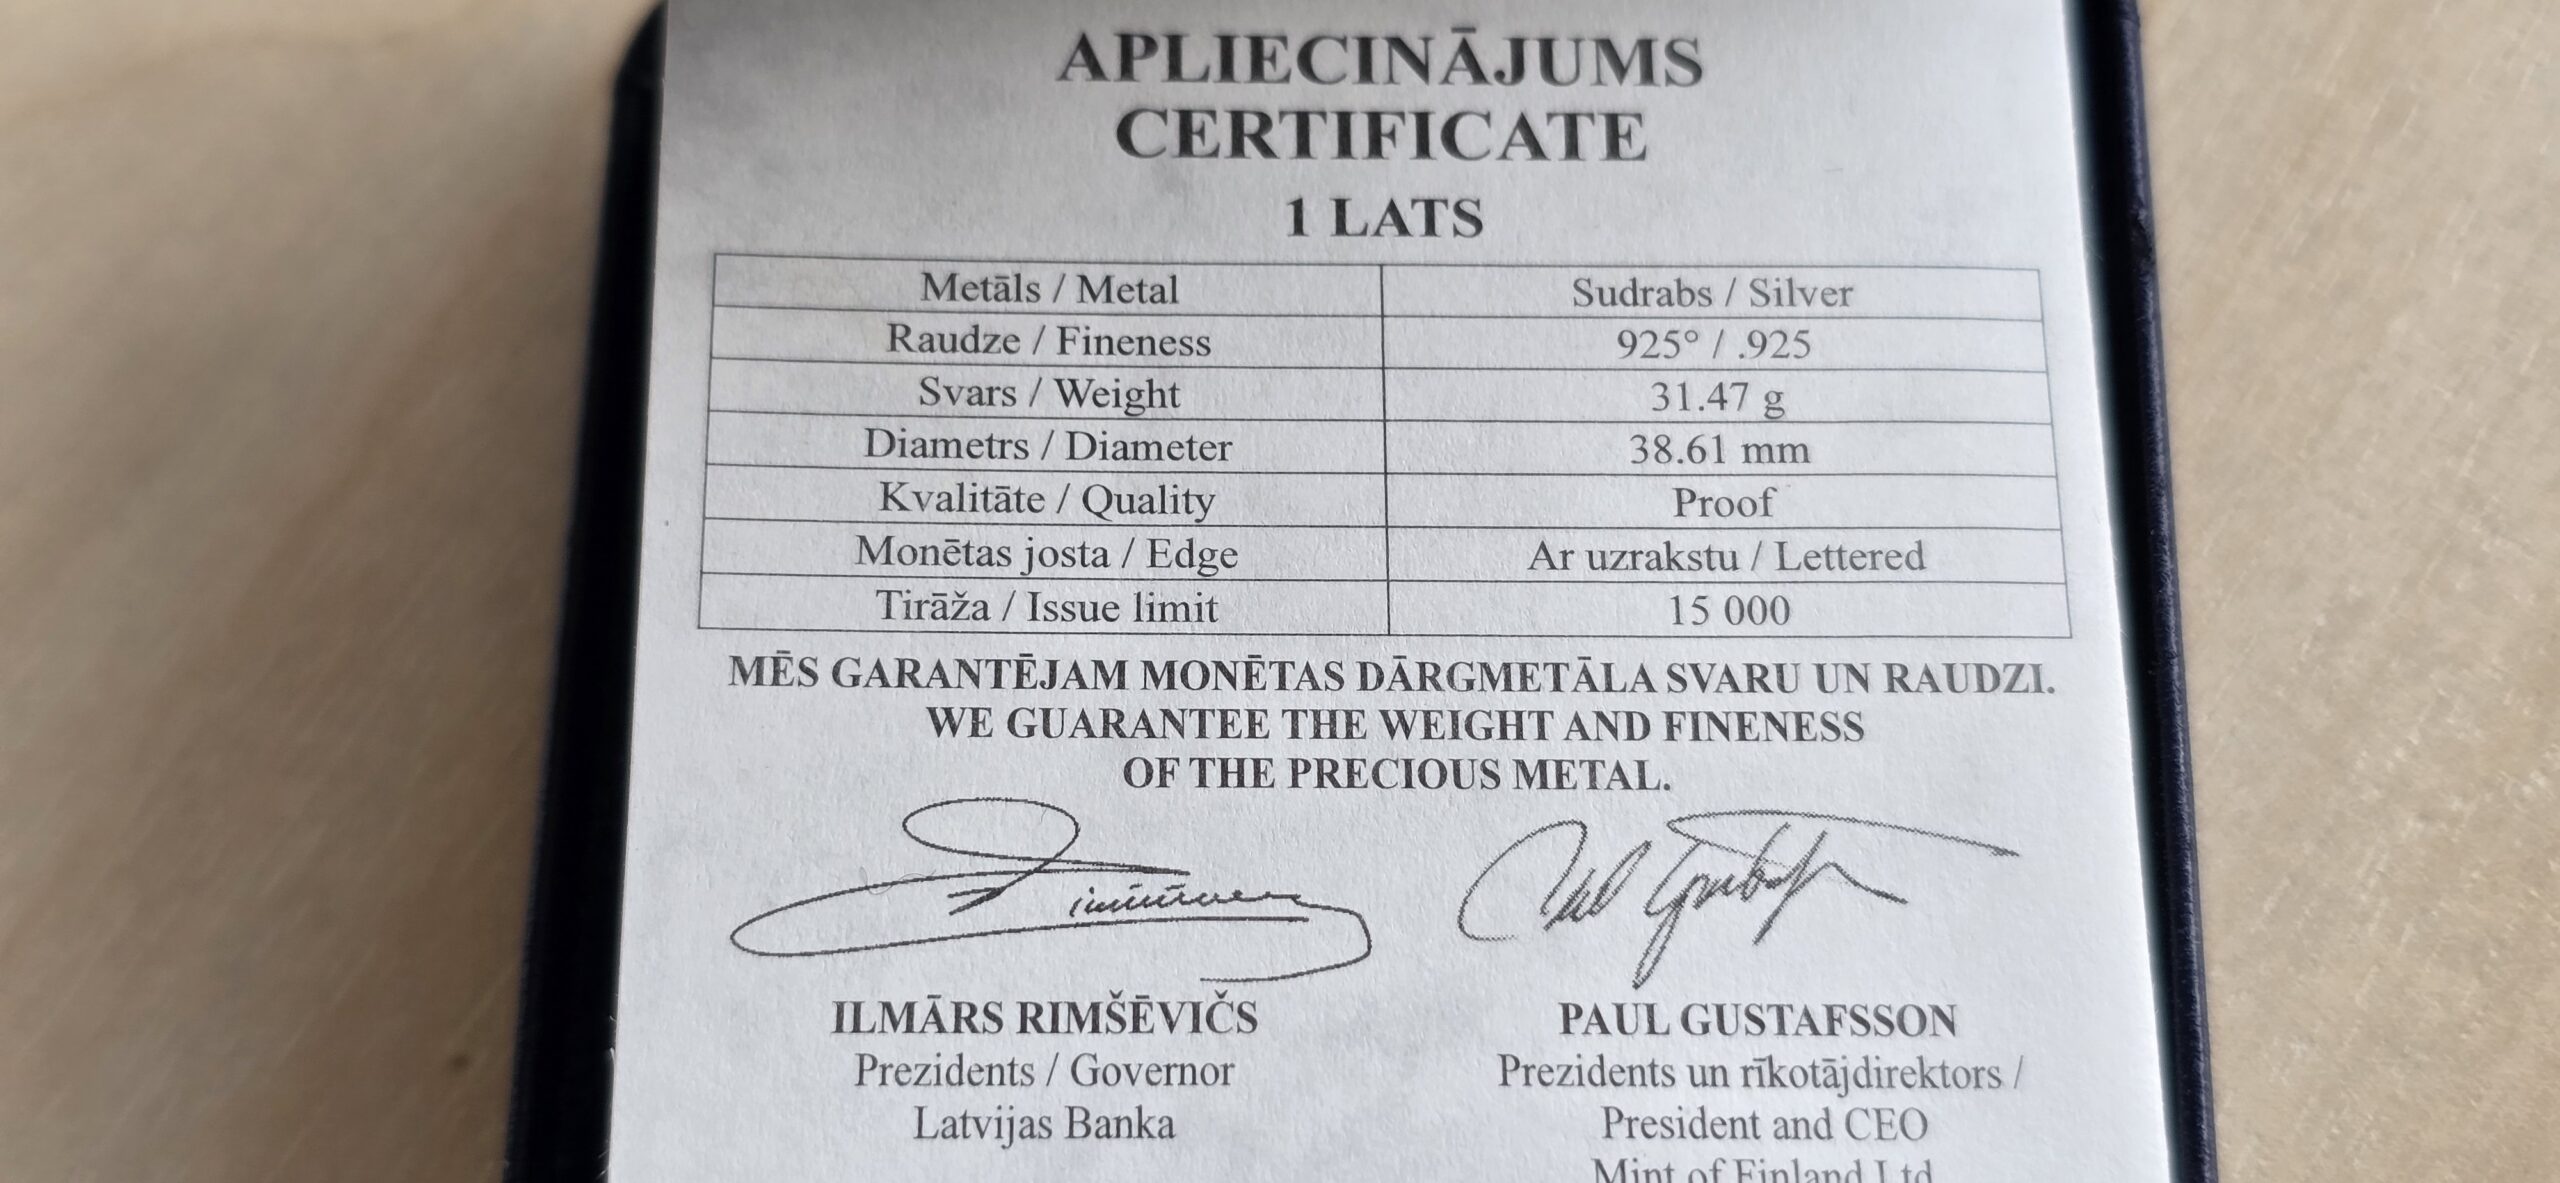 APLIECINĀJUMS
CERTIFICATE
1 LATS
Metāls / Metal Sudrabs / Silver
Raudze / Fineness 925° / .925
Svars / Weight 31.47 g
Diametrs / Diameter 38.61 mm
Kvalitāte / Quality Proof
Monētas josta / Edge Ar uzrakstu / Lettered
Tirāža / Issue limit 15 000
MĒS GARANTĒJAM MONĒTAS DĀRGMETĀLA SVARU UN RAUDZI.
WE GUARANTEE THE WEIGHT AND FINENESS
OF THE PRECIOUS METAL.
ILMĀRS RIMŠĒVIČS PAUL GUSTAFSSON
Prezidents / Governor Prezidents un rīkotājdirektors /
Latvijas Banka President and CEO
Mint of Finland Ltd